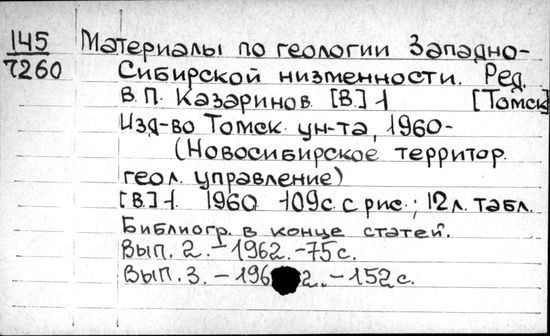 145
7260
Материалы по геологии Западно-
Сибирской низменности. Ред.
В.П. Казаринов [В.] 1 [Томск]
Изд-во Томск. ун-та, 1960-
(Новосибирское территор.
геол. управление)
[В.] 1. 1960 109с. с рис.; 12л. табл.
Библиогр. в конце статей.
Вып. 2. - 1962. - 75 с.
Вып. 3. - 196 2. - 152 с.